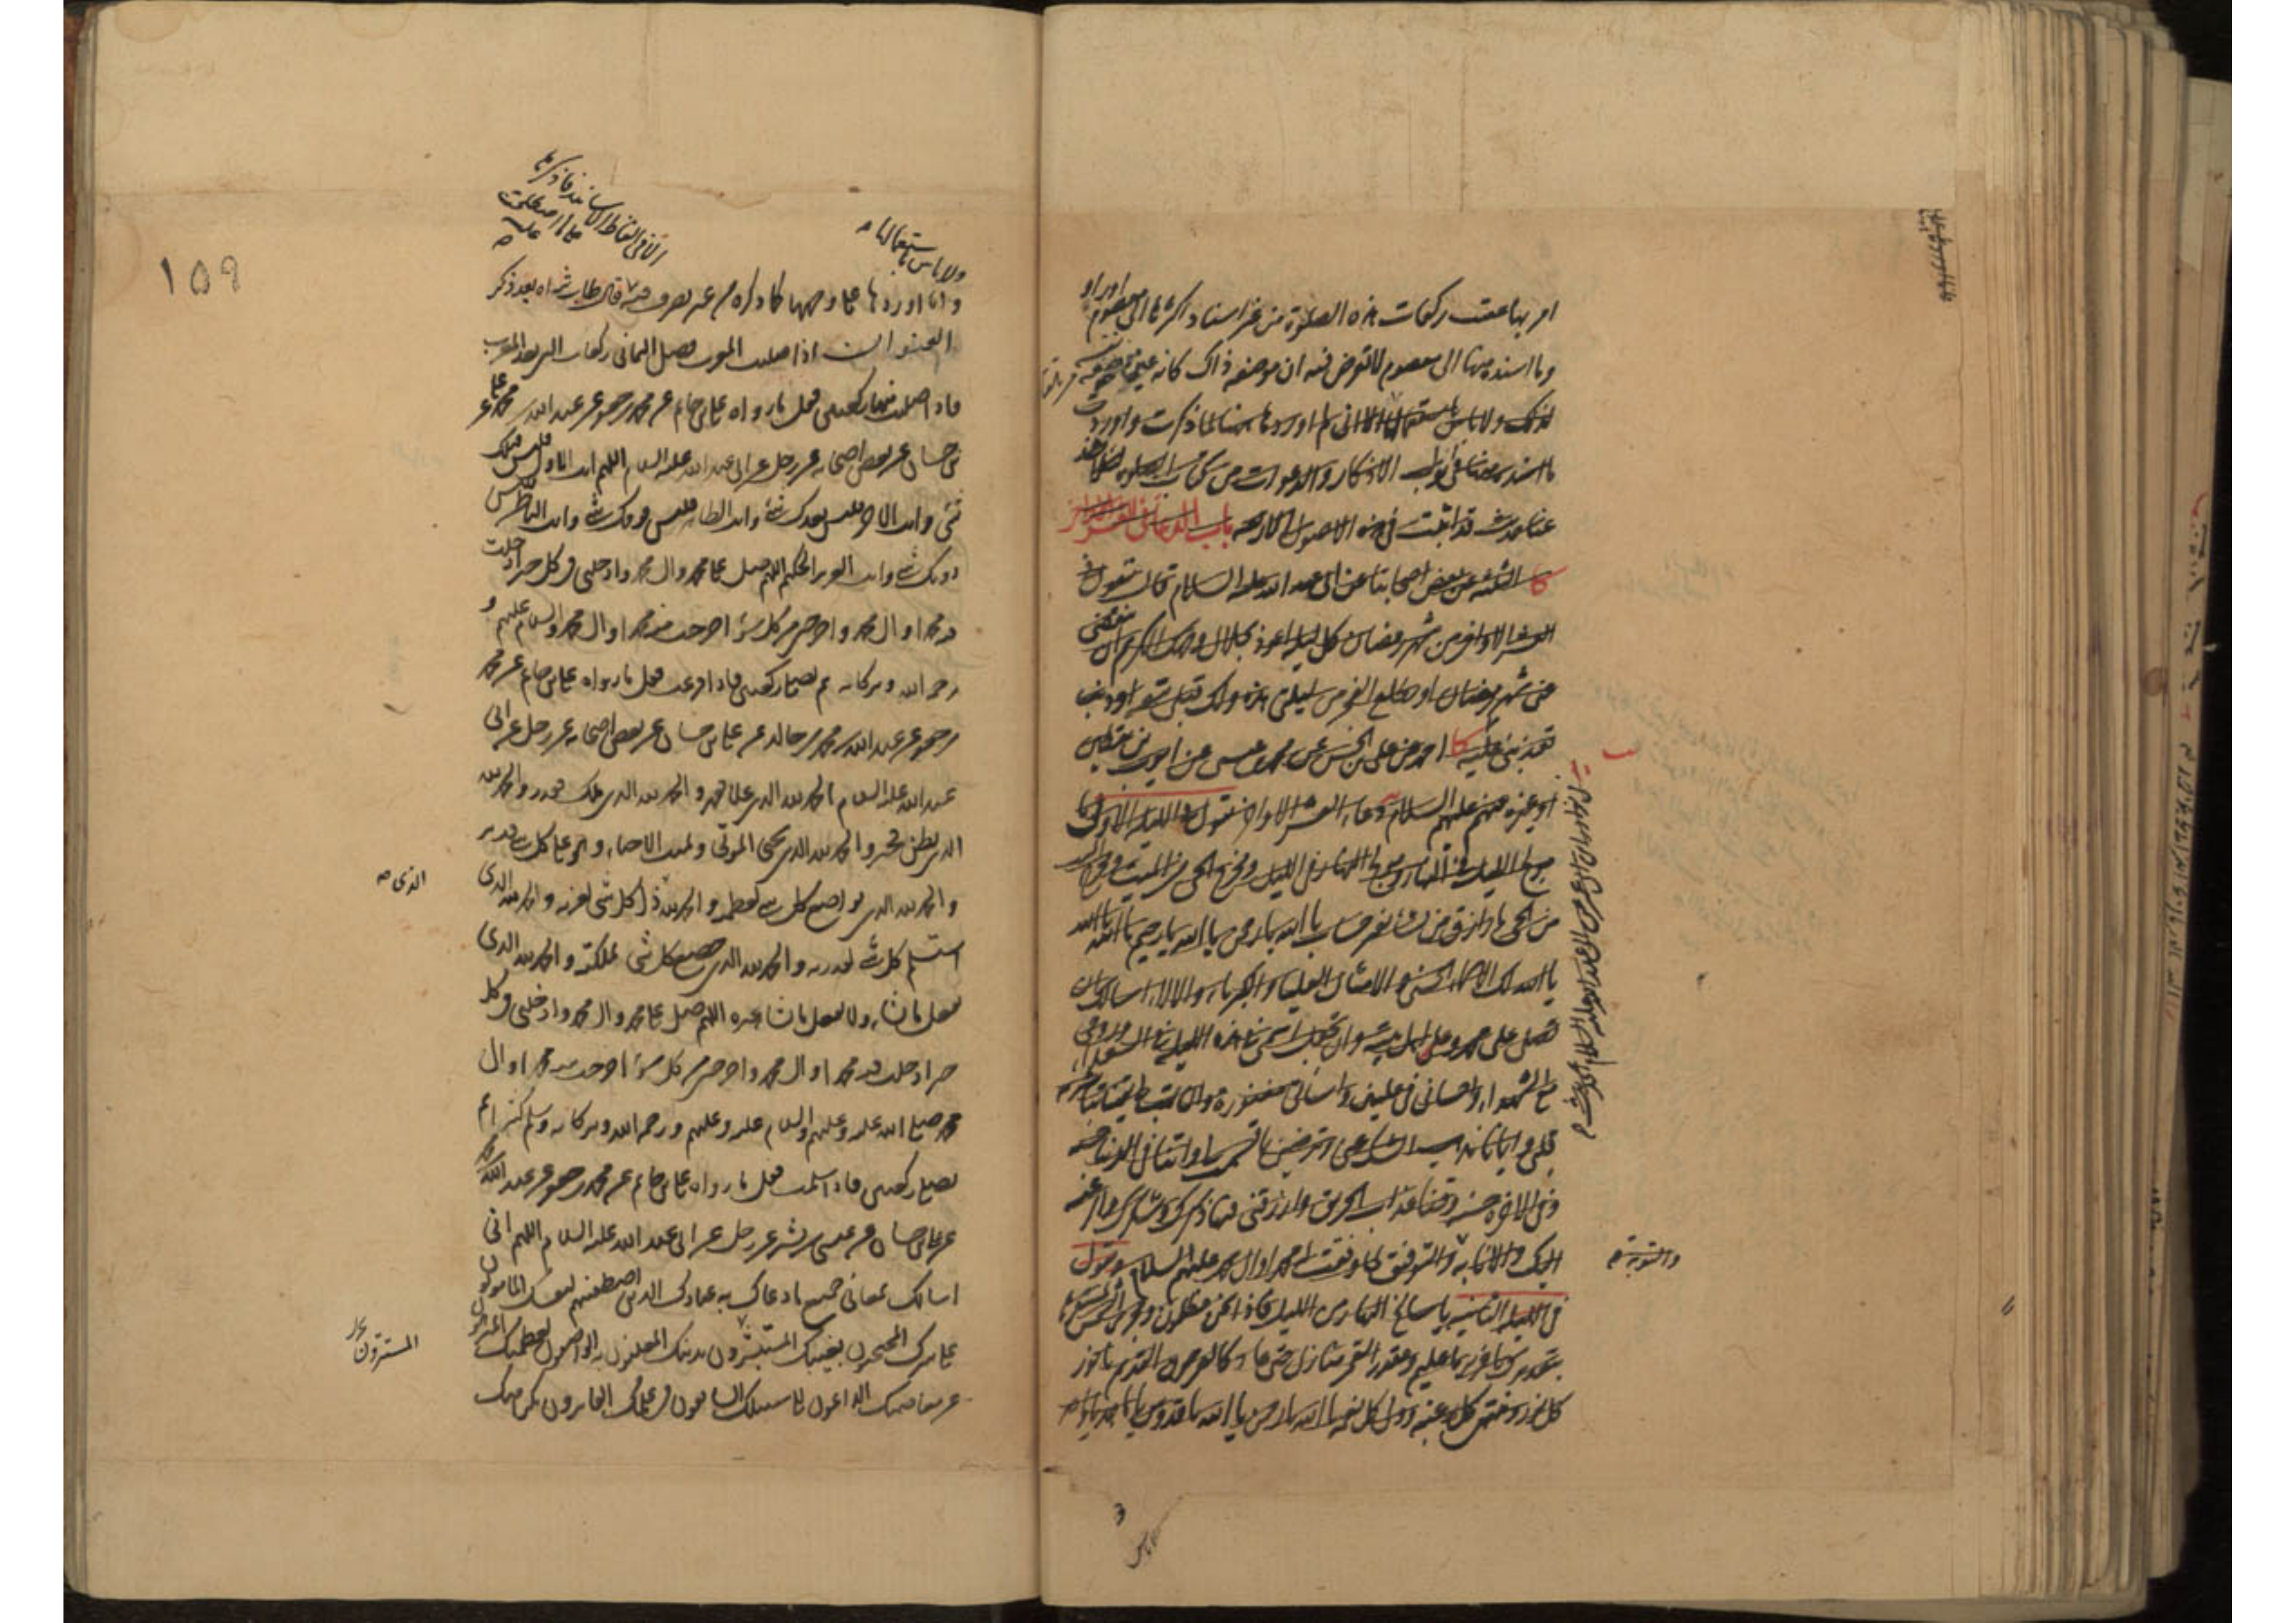 امر بها عقب ركعات هذه الصلوة من غير اسناد اكثرها الى معصوم
وما اسنده منها الى معصوم
لذلك ولا باس باستعمالها الا اني لم اوردها هنا لما ذكرت واوردت
ما اسند بعضها في ابواب الاذكار والدعوات من كتاب الصلوة
باب الدعاء في العشر الاواخر
كا الثلثة عن بعض اصحابنا عن ابي عبد الله عليه السلام قال تقول في
العشر الاواخر من شهر رمضان كل ليلة اعوذ بجلال وجهك الكريم ان ينقضي
عني شهر رمضان او يطلع الفجر من ليلتي هذه ولك قبلي تبعة او ذنب
تعذبني عليه كا احمد عن علي بن الحسن عن محمد بن عيسى عن ايوب بن يقطين
او غيره عنهم عليهم السلام دعاء العشر الاواخر تقول في الليلة الاولى يا
مولج الليل في النهار ومولج النهار في الليل ومخرج الحي من الميت ومخرج الميت
من الحي يا رازق من يشاء بغير حساب يا الله يا رحمن يا الله يا رحيم يا الله يا الله
يا الله لك الاسماء الحسنى والامثال العليا والكبرياء والالاء اسالك ان
تصلي على محمد وعلى اهل بيته وان تجعل اسمي في هذه الليلة في السعداء وروحي
مع الشهداء واحساني في عليين واساءتي مغفورة وان تهب لي يقينا تباشر به
قلبي وايمانا يذهب الشك عني وترضيني بما قسمت لي واتنا في الدنيا حسنة
وفي الاخرة حسنة وقنا عذاب الحريق وارزقني فيها ذكرك وشكرك والرغبة
اليك والانابة والتوفيق لما وفقت له محمدا وال محمد عليهم السلام وتقول
في الليلة الثانية يا سالخ النهار من الليل فاذا نحن مظلمون ومجري الشمس لمستقرها
بتقديرك يا عزيز يا عليم ومقدر القمر منازل حتى عاد كالعرجون القديم يا نور
كل نور ومنتهى كل رغبة وولي كل نعمة يا الله يا رحمن يا الله يا قدوس يا احد يا واحد
والتوبة
ولا باس باستعمالها
الا في التقاط الاسانيد فاذكرها
على ما اصطلحت
عليه
١٥٩
وانما اوردها على وجهها كما ذكره من غير تصرف فيه قال طاب ثراه بعد ذكر
العنوان اذا صليت المغرب فصل الثماني ركعات التي بعد المغرب
فاذا صليت منها ركعتين فقل ما رواه علي بن حاتم عن محمد بن جعفر عن عبد الله بن محمد عن علي
بن حسان عن بعض اصحابه عن رجل عن ابي عبد الله عليه السلام اللهم انت الاول فليس قبلك
شيء وانت الاخر فليس بعدك شيء وانت الظاهر فليس فوقك شيء وانت الباطن فليس
دونك شيء وانت العزيز الحكيم اللهم صل على محمد وال محمد وادخلني في كل خير ادخلت
فيه محمدا وال محمد واخرجني من كل سوء اخرجت منه محمدا وال محمد والسلام عليهم و
رحمة الله وبركاته ثم تصلي ركعتين فاذا فرغت فقل ما رواه علي بن حاتم عن محمد
بن جعفر عن عبد الله بن محمد بن خالد عن علي بن حسان عن بعض اصحابه عن رجل عن ابي
عبد الله عليه السلام الحمد لله الذي علا فقهر والحمد لله الذي ملك فقدر والحمد لله
الذي بطن فخبر والحمد لله الذي يحيي الموتى ويميت الاحياء وهو على كل شيء قدير
والحمد لله الذي تواضع كل شيء لعظمته والحمد لله ذل كل شيء لعزته والحمد لله الذي
الذي
استسلم كل شيء لقدرته والحمد لله الذي خضع كل شيء لملكته والحمد لله الذي
يفعل ما يشاء ولا يفعل ما يشاء غيره اللهم صل على محمد وال محمد وادخلني في كل
خير ادخلت فيه محمدا وال محمد واخرجني من كل سوء اخرجت منه محمدا وال
محمد صلى الله عليه وعليهم والسلام عليه وعليهم ورحمة الله وبركاته وسلم كثيرا ثم
تصلي ركعتين فاذا سلمت فقل ما رواه علي بن حاتم عن محمد بن جعفر عن عبد الله بن محمد
عن علي بن حسان عن عيسى بن بشير عن رجل عن ابي عبد الله عليه السلام اللهم اني
اسالك بمعاني جميع ما دعاك به عبادك الذين اصطفيتهم لنفسك المامونون
على سرك المحتجبون بغيبك المستبشرون بدينك المعلنون به الواصفون لعظمتك المتنزهون
المستترون
عن معاصيك الداعون الى سبيلك السابقون في علمك الفائزون بكرامتك